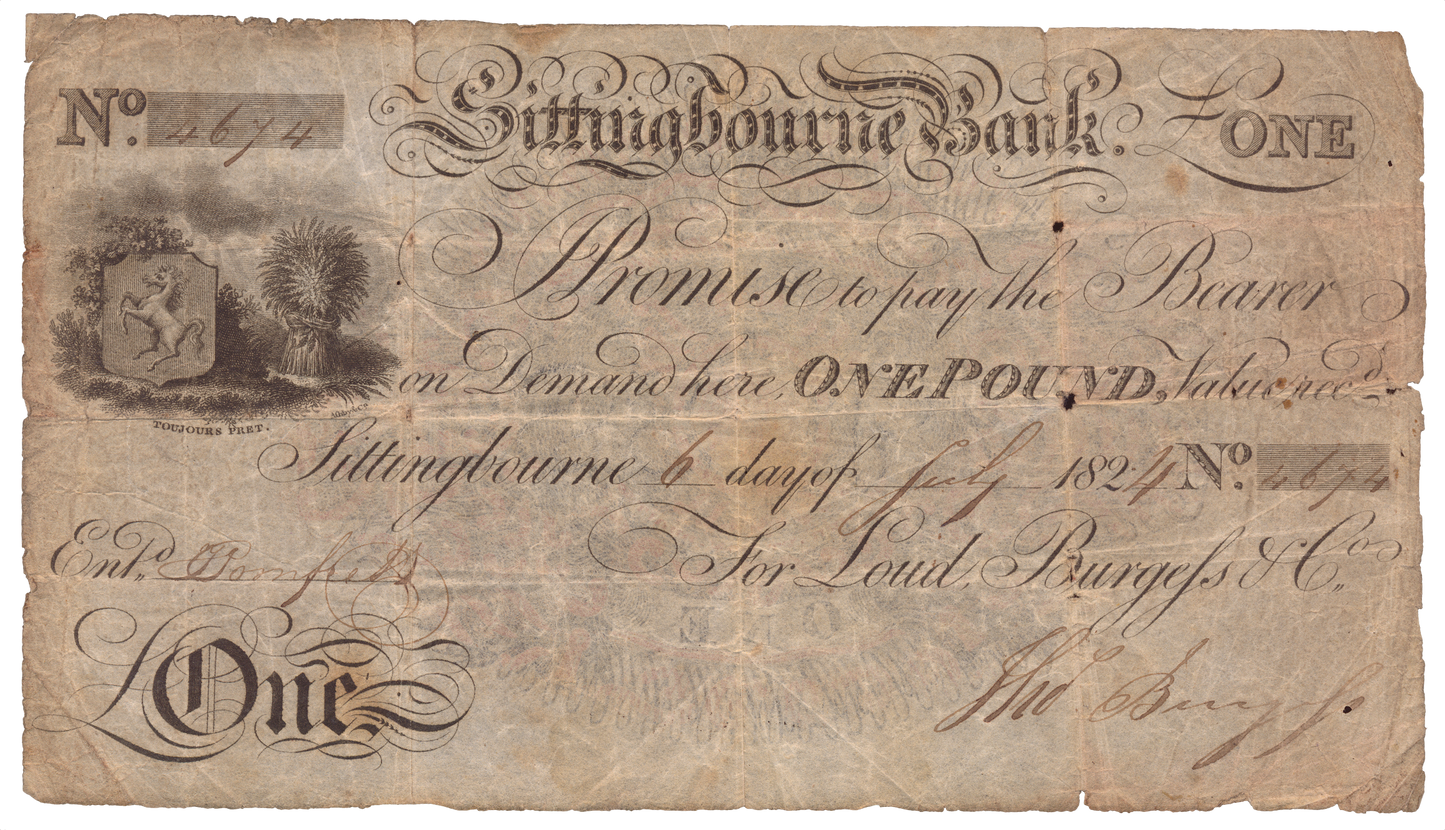 No. 4674 Sittingbourne Bank. £ONE
I Promise to pay the Bearer
on Demand here, ONE POUND, Value recd.
TOUJOURS PRET.
Sittingbourne 6 day of July 1824 No. 4674
Entd.
For Loud, Burgeſs & Co.
£One
Thos Burgeſs